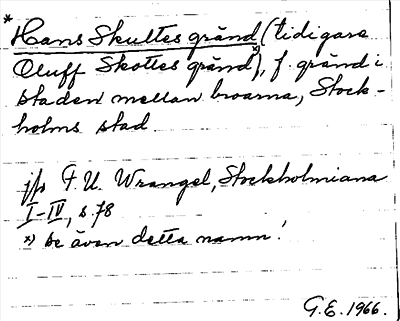 * Hans Skultes gränd (tidigare
Oluff Skottes gränd x)), f. gränd i
staden mellan broarna, Stock-
holms stad.
jfr F.U. Wrangel, Stockholmiana
I-IV, s. 78
x) Se även detta namn!
G.E. 1966.